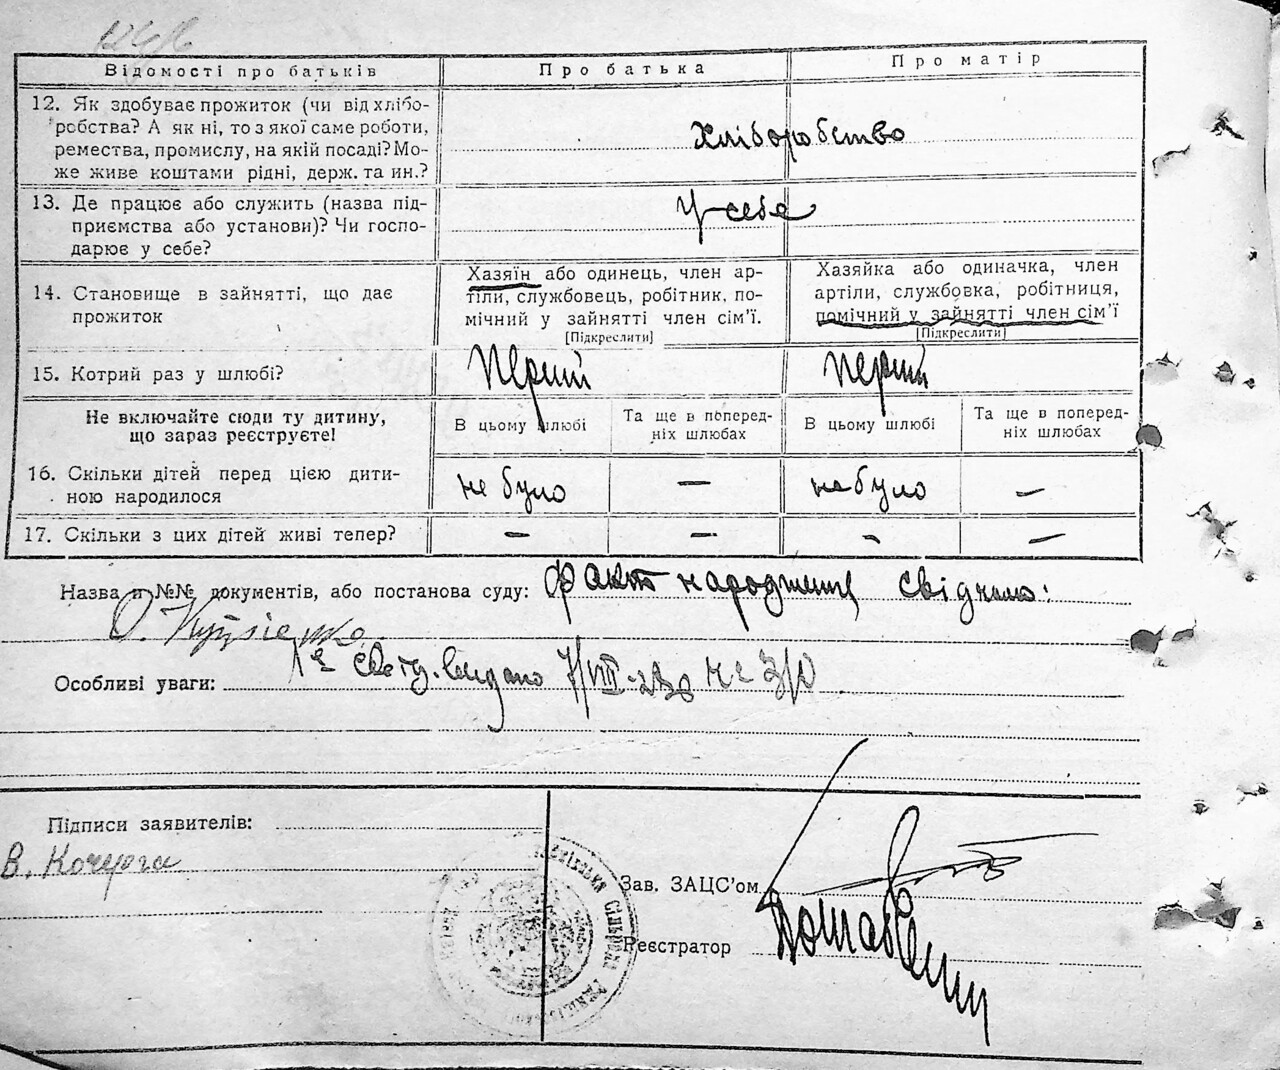 Відомості про батьків
Про батька
Про матір
12. Як здобуває прожиток (чи від хлібо-
робства? А як ні, то з якої саме роботи,
ремества, промислу, на якій посаді? Мо-
же живе коштами рідні, держ. та ин.?
Хліборобство
13. Де працює або служить (назва під-
приємства або установи)? Чи госпо-
дарює у себе?
У себе
14. Становище в зайнятті, що дає
прожиток
Хазяїн або одинець, член ар-
тіли, службовець, робітник, по-
мічний у зайнятті член сім'ї.
[Підкреслити]
Хазяйка або одиначка, член
артіли, службовка, робітниця,
помічний у зайнятті член сім'ї
[Підкреслити]
15. Котрий раз у шлюбі?
Перший
Перший
Не включайте сюди ту дитину,
що зараз реєструєте!
В цьому шлюбі
Та ще в поперед-
ніх шлюбах
В цьому шлюбі
Та ще в поперед-
ніх шлюбах
16. Скільки дітей перед цією дити-
ною народилося
не було
—
не було
—
17. Скільки з цих дітей живі тепер?
—
—
—
—
Назва и №№ документів, або постанова суду: Факт народження свідчило:
О.
Особливі уваги: видано
Підписи заявителів:
В. Кочерга
Зав. ЗАЦС'ом
Реєстратор